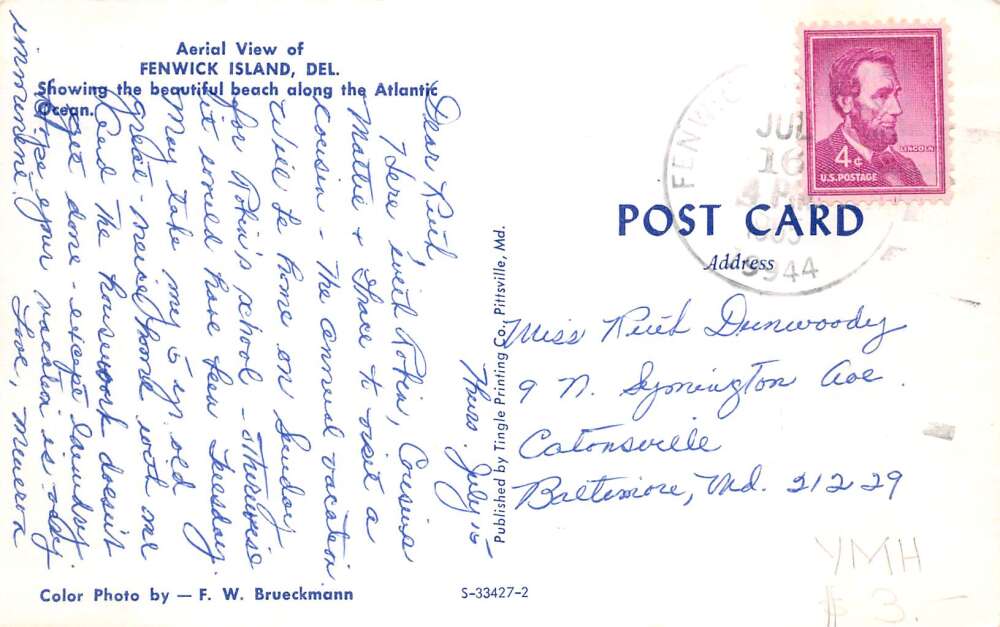 Aerial View of
FENWICK ISLAND, DEL.
Showing the beautiful beach along the Atlantic
Ocean.
Thurs. July 15
Dear Ruth,
Here, with Robin, Cousins
Mattie & Grace to visit a
cousin - The annual vacation
Will be home on Sunday
for Robin's school - otherwise
it would have been Tuesday.
May take my 5 yr. old
great-niece home with me
Need the housework doesn't
get done - except laundry
Hope your vacation is okay
Love, Minerva
imminent.
Published by Tingle Printing Co., Pittsville, Md.
LINCOLN
4¢
U.S. POSTAGE
FENWIC
JUL
16
4 PM
19944
POST CARD
Address
Miss Ruth Dunwoody
9 N. Symington Ave.
Catonsville
Baltimore, Md. 21229
YMH
$3.-
Color Photo by — F. W. Brueckmann
S-33427-2